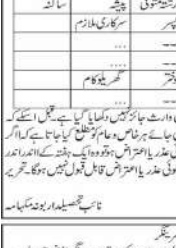 رشتہ متوفی پیشہ ساکنہ
پسر سرکاری ملازم
... ---
.... ---
دختر گھریلو کام
--- ---
وارث جائز نہیں دکھایا گیا ہے۔ قبل اسکے کہ
جائے ہر خاص و عام کو مطلع کیا جاتا ہے کہ اگر
عذر یا اعتراض ہو تو وہ ایک ہفتہ کے اندر اندر
کوئی عذر یا اعتراض قابل قبول نہیں ہوگا۔ تحریر
نائب تحصیلدار بونہ مکہامہ